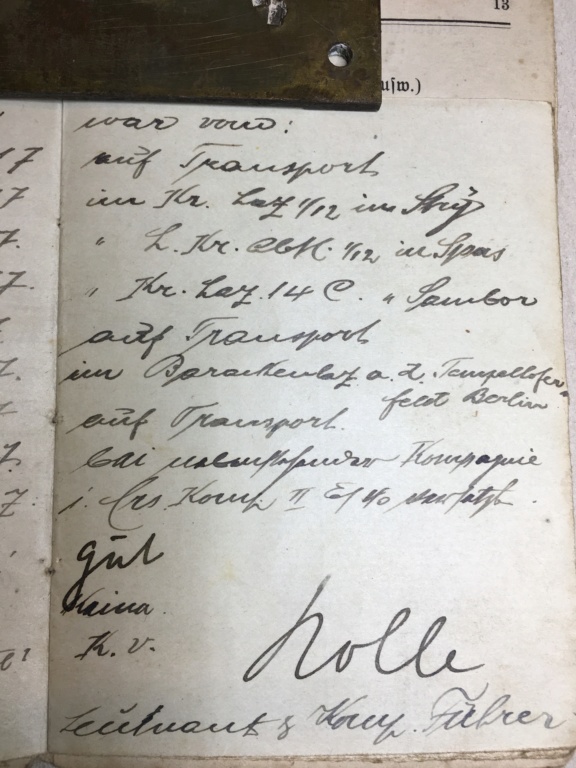 13
usw.)
war vom:
auf Transport
im Kr. Laz 1/12 in Stryj
" L. Kr. Abt. 1/12 in Spas
" Kr. Laz. 14 C. " Sambor
auf Transport
im Barackenlaz a. d. Tempelhofer-
feld Berlin
auf Transport.
bei nebenstehender Kompagnie
z. Ers. Komp II versetzt.
gut
Keine
K. v.
Nolle
Leutnant & Komp. Führer
17
17
7.
17.
7.
7.
7.